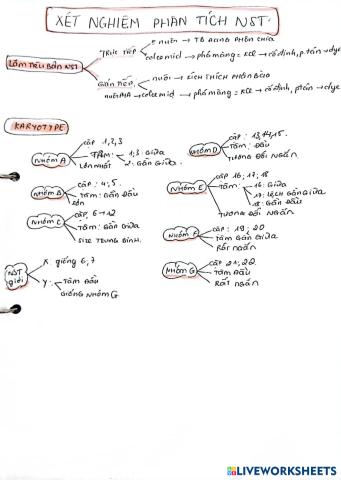 XÉT NGHIỆM PHÂN TÍCH NST
LÀM TIÊU BẢN NST
TRỰC TIẾP
nuôi → TB ĐANG PHÂN CHIA
colcemid → phá màng = KCl → cố định, p.tán → dye
GIÁN TIẾP
nuôi → KÍCH THÍCH PHÂN BÀO
colcemid → phá màng = KCl → cố định, p.tán → dye
KARYOTYPE
NHÓM A
CẶP 1, 2, 3
TÂM: 1; 3: GIỮA
2: GẦN GIỮA
LỚN NHẤT
NHÓM B
CẶP: 4; 5.
TÂM: GẦN ĐẦU
LỚN
NHÓM C
CẶP: 6 → 12
TÂM: GẦN GIỮA
SIZE TRUNG BÌNH.
NST GIỚI
X giống 6, 7
Y: TÂM ĐẦU
GIỐNG NHÓM G
NHÓM D
CẶP: 13, 14, 15.
TÂM: ĐẦU
TƯƠNG ĐỐI NGẮN
NHÓM E
CẶP 16; 17; 18
TÂM: 16: GIỮA
17: LỆCH GẦN GIỮA
18: GẦN ĐẦU
TƯƠNG ĐỐI NGẮN
NHÓM F
CẶP: 19; 20
TÂM GẦN GIỮA
RẤT NGẮN
NHÓM G
CẶP: 21, 22.
TÂM ĐẦU
RẤT NGẮN
LIVEWORKSHEETS